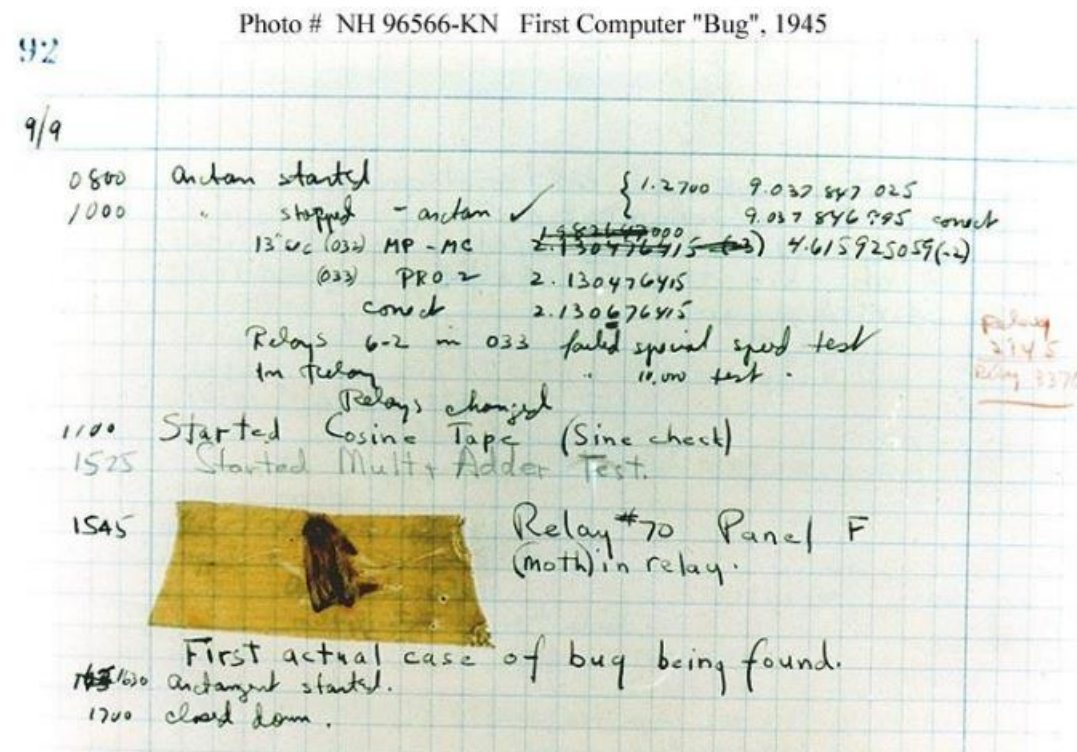 Photo # NH 96566-KN First Computer "Bug", 1945
92
9/9
0800 antan started
1000 " stopped - antan ✓ { 1.2700 9.037 847 025
9.037 846 995 correct
13"uc (032) MP - MC 2.130476415 (-3) 4.615925059(-2)
(033) PRO 2 2.130476415
correct 2.130676415
Relays 6-2 in 033 failed special speed test
In Relay " 10,000 test .
Relays changed
Relay
2145
Relay 3370
1100 Started Cosine Tape (Sine check)
1525 Started Mult + Adder Test.
1545 Relay #70 Panel F
(moth) in relay.
First actual case of bug being found.
1630 antangent started.
1700 closed down.